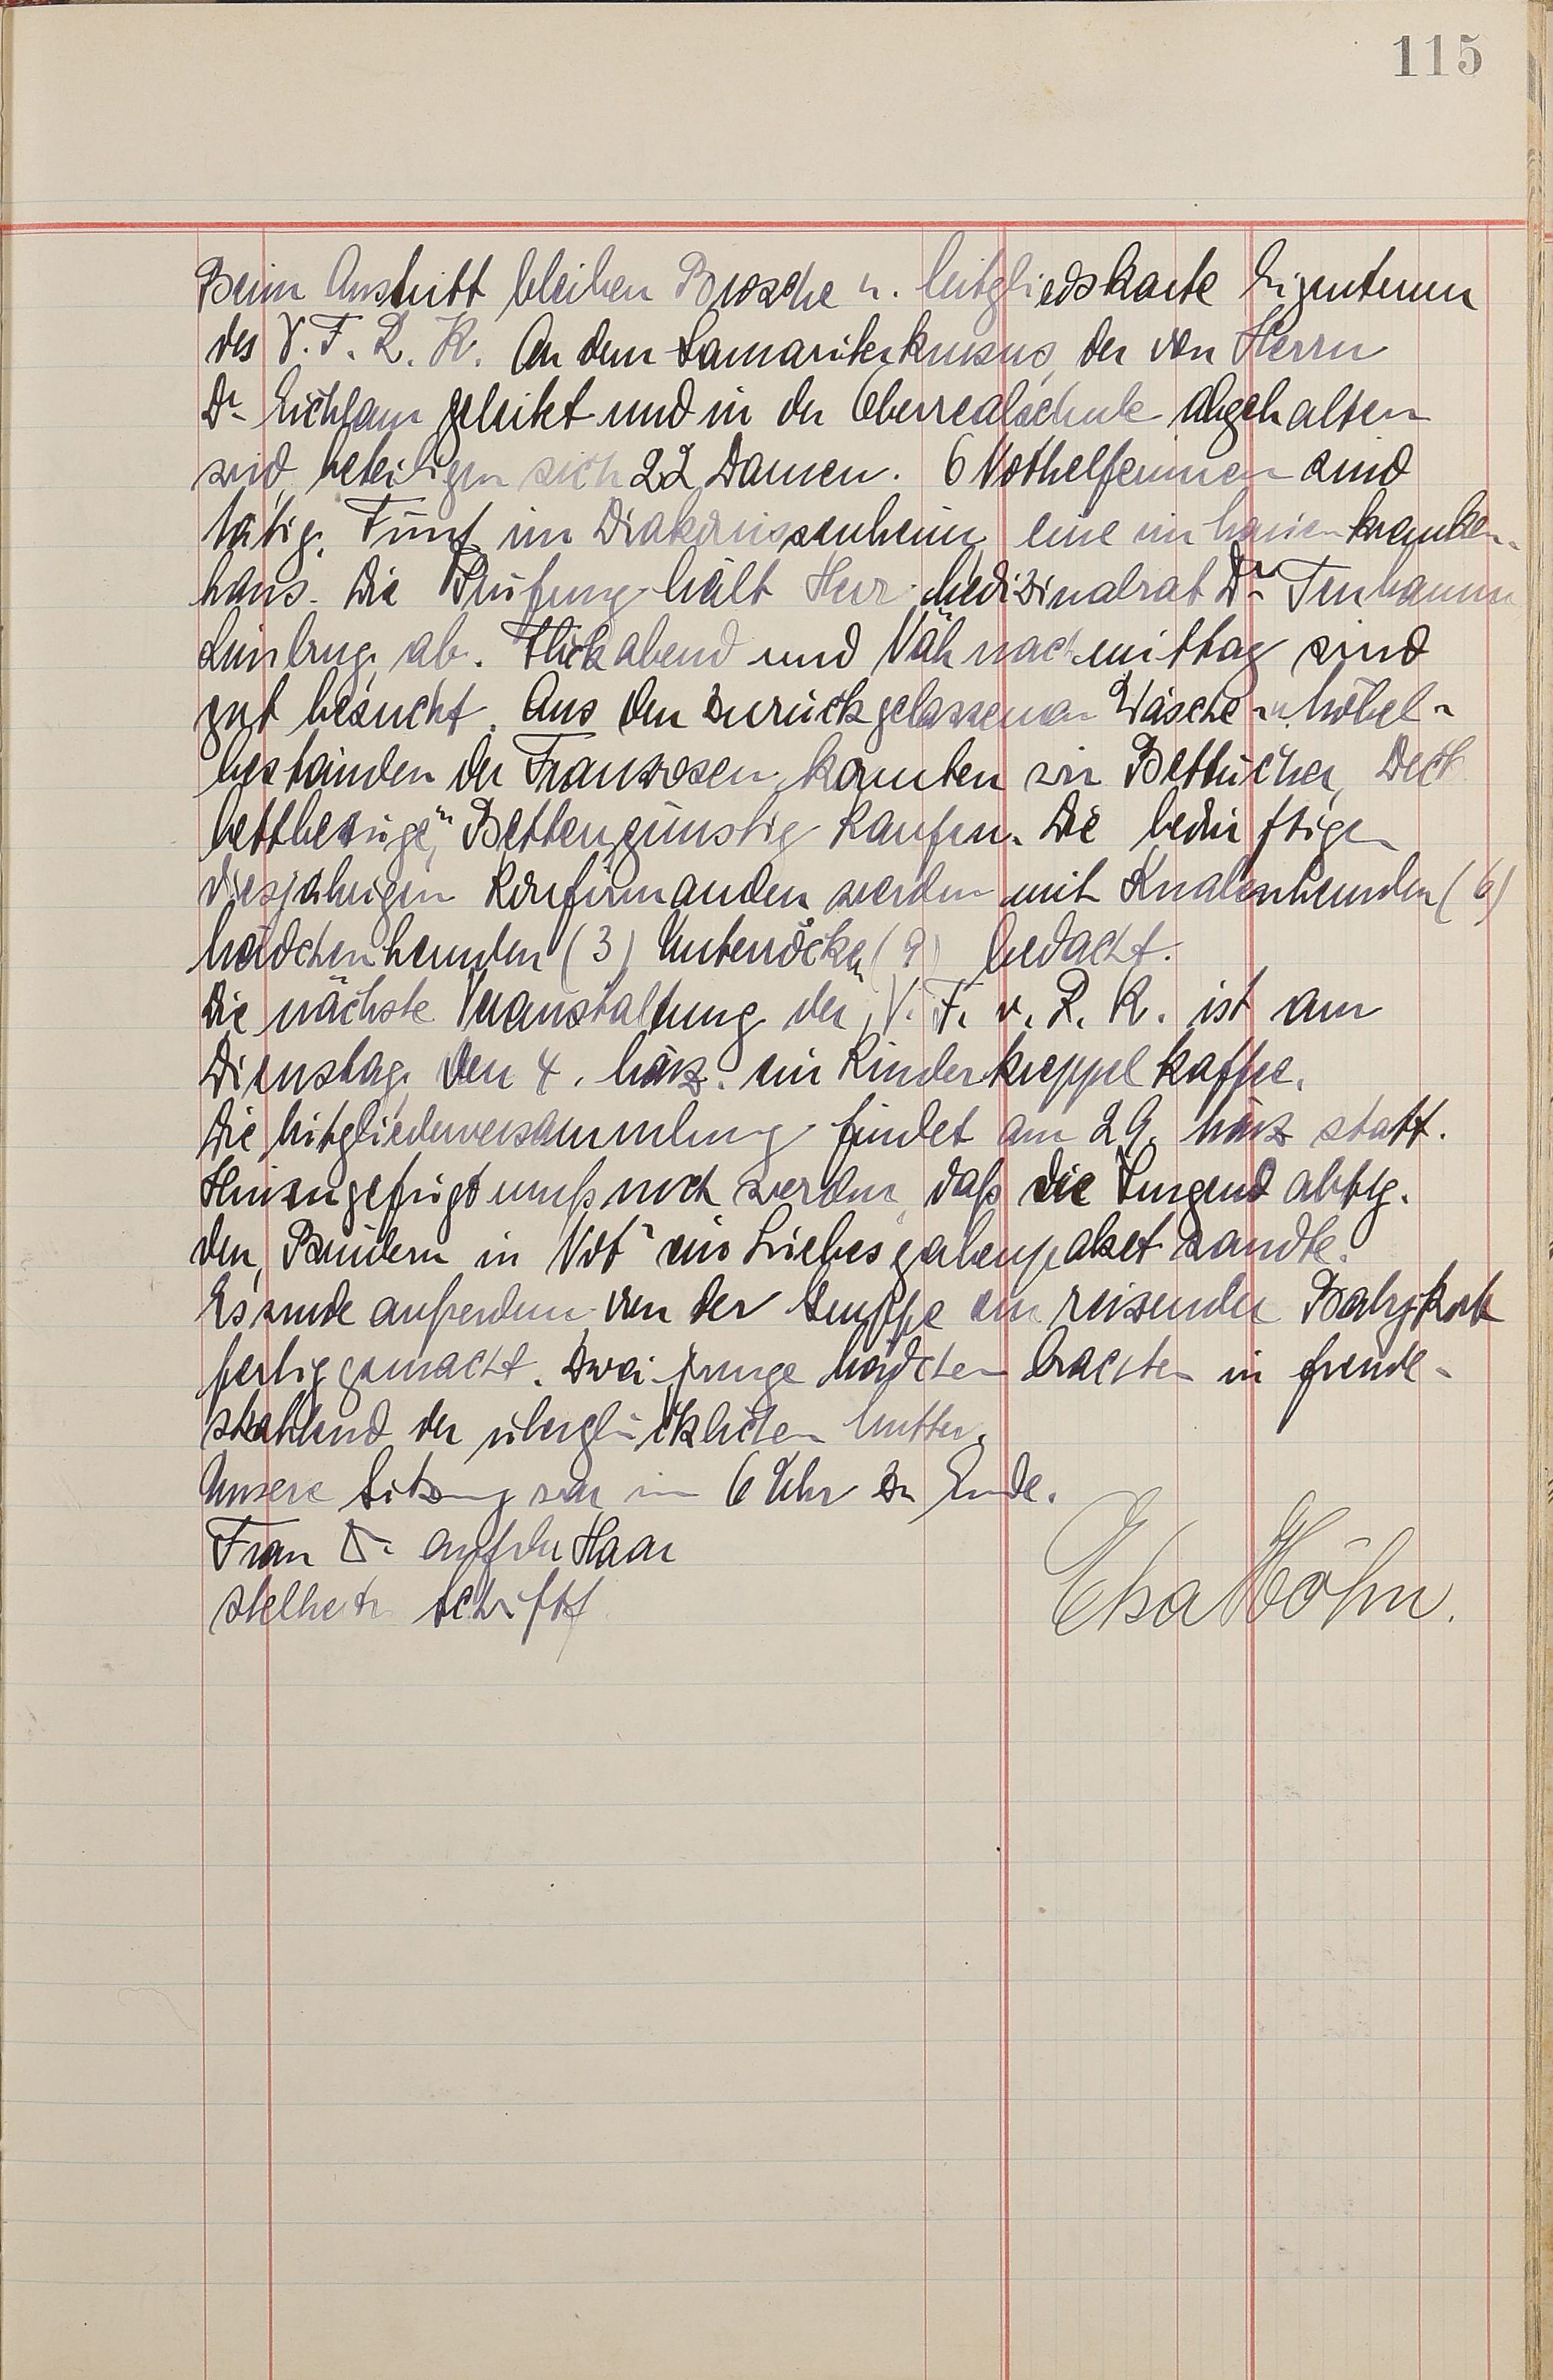 115
Beim Austritt bleiben Brosche u. Mitgliedskarte Eigentum
des V. F. R. K. An dem Samariterkursus, der von Herrn
Dr. geleitet und in der Oberrealschule abgehalten
wird, beteiligen sich 22 Damen. 6 Nothelferinnen sind
tätig. Fünf im Diakonissenheim, eine im Marienkranken-
haus. Die Prüfung hält Herr Medizinalrat Dr.
Limburg, ab. Flickabend und Nähnachmittag sind
gut besucht. Aus den zurückgelassenen Wäsche- u. Möbel-
beständen der Franzosen konnten wir Bettücher, Deck
bettbezüge, u Betten günstig kaufen. Die bedürftigen
diesjährigen Konfirmanden werden mit Knabenhemden (6)
Mädchenhemden (3) Unterröcken (9) bedacht.
Die nächste Veranstaltung des V. F. v. R. K. ist am
Dienstag, den 4. März. ein Kinderkreppelkaffee.
Die Mitgliederversammlung findet am 29. März statt.
Hinzugefügt muß noch werden, daß die Jugend abtlg.
den „Brüdern in Not" ein Liebesgabenpaket sandte.
Es wurde außerdem von der Gruppe ein reizender Babykorb
fertig gemacht. Zwei junge Mädchen brachten in freude-
strahlend der überglücklichen Mutter.
Unsere Sitzung war um 6 Uhr zu Ende.
Frau Dr. aufder Haar
stellvertr. Schriftf.
Elsa Höhn.